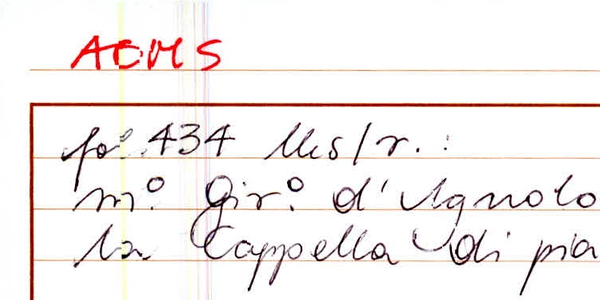 AOMS
fo° 434 Ms/r. :
m° Gir° d'Agnolo
la Cappella di pia